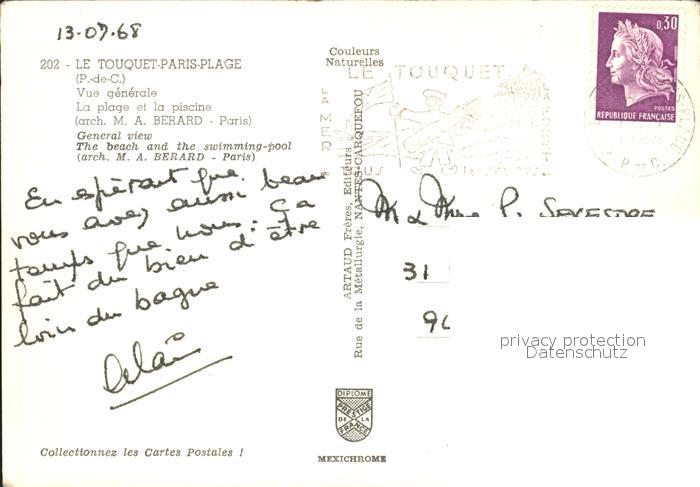 13-07-68
202 - LE TOUQUET-PARIS-PLAGE
(P.-de-C.)
Vue générale
La plage et la piscine
(arch. M. A. BERARD - Paris)
General view
The beach and the swimming-pool
(arch. M. A. BERARD - Paris)
En espérant que
vous avez aussi beau
temps que nous : ça
fait du bien d'être
loin du bagne
Alain
Collectionnez les Cartes Postales !
Couleurs
Naturelles
ARTAUD Frères, Editeurs
Rue de la Métallurgie, NANTES-CARQUEFOU
DIPLOME
PRESTIGE
DE LA
FRANCE
MEXICHROME
LE TOUQUET
LA MER
LA FORET
TOUS LES SPORTS
P. DE C.
0,30
POSTES
REPUBLIQUE FRANÇAISE
M & Mme P.
31
privacy protection
Datenschutz